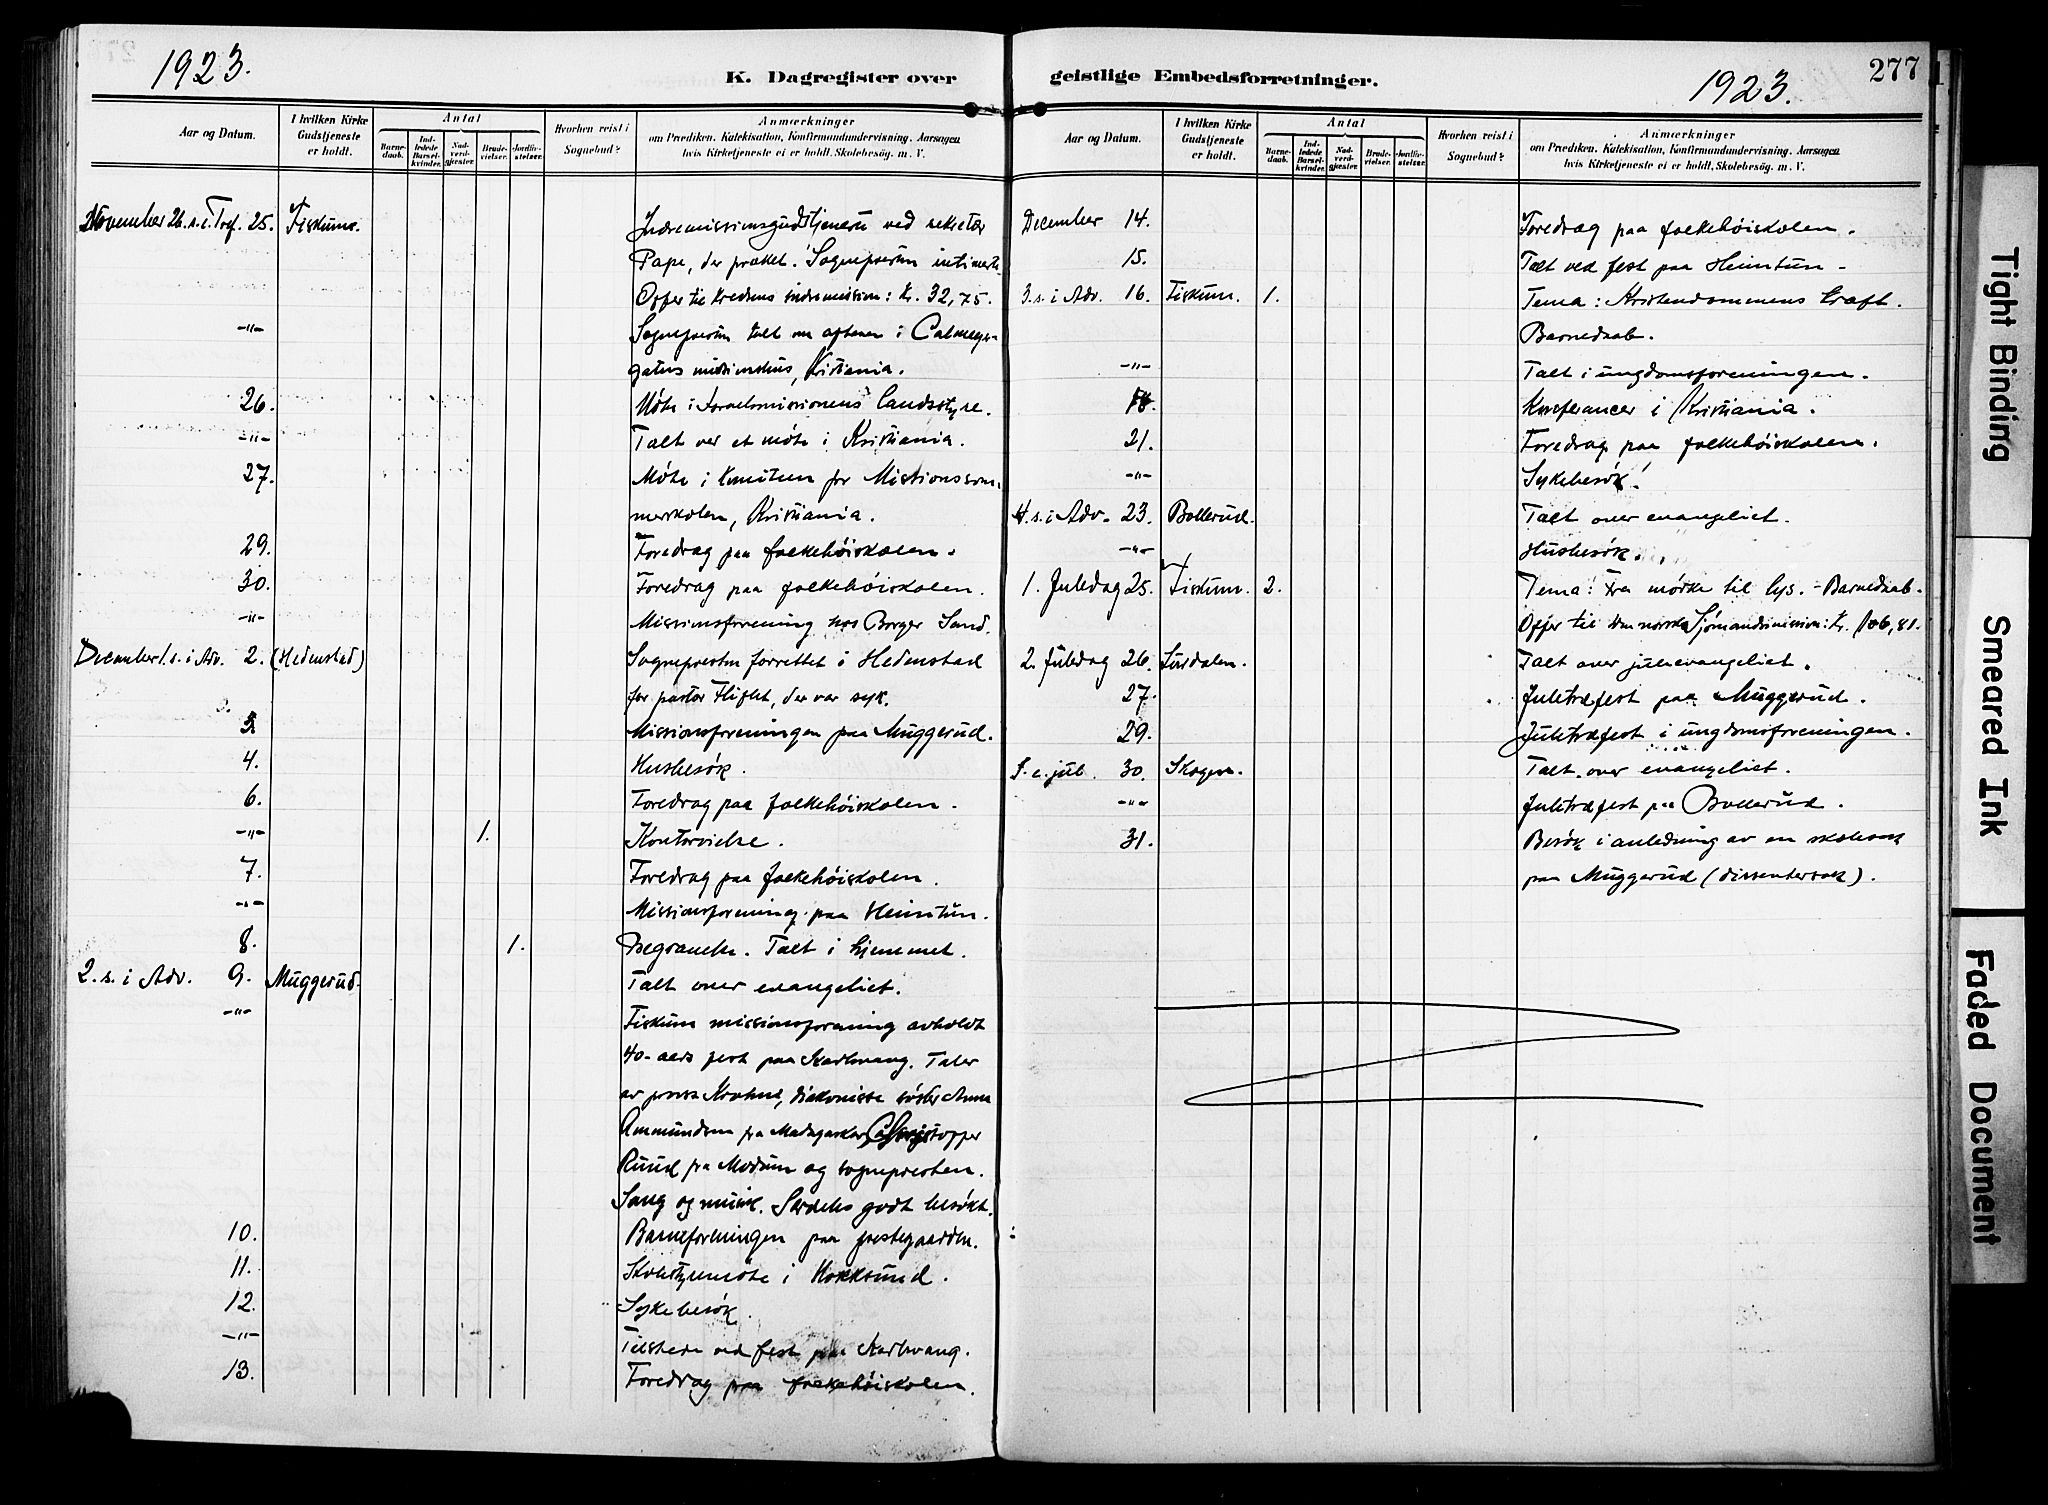 1923.
K. Dagregister over
Aar og Datum.
I hvilken Kirke Gudstjeneste er holdt.
Antal
Barnedaab.
Indledede Barselkvinder.
Nadverdgjester.
Brudevielser.
Jordfæstelser.
Hvorhen reist i Sognebud?
Anmærkninger
om Prædiken, Katekisation, Konfirmandundervisning, Aarsagen
hvis Kirketjeneste ei er holdt, Skolebesøg. m. V.
November 26. s. e. Tref. 25. Fiskum. Indremissionsgudstjeneste ved sekretær
Pape, der præket. Sognepresten intimerte.
Offer til kredsens indremission: kr. 32,75.
-"- Sognepresten talt om aftenen i Calmeyer-
gatens missionshus, Kristiania.
26. Møte i Israelsmissionens landsstyre.
-"- Talt ver et møte i Kristiania.
27. Møte i komiteen for Missionssom-
merskolen, Kristiania.
29. Foredrag paa folkehøiskolen.
30. Foredrag paa folkehøiskolen.
-"- Missionsforening hos Borger Sand.
December 1. s. i Adv. 2. (Hedenstad) Sognepresten forrettet i Hedenstad
for pastor Fliflet, der var syk.
3. Missionsforeningen paa Muggerud.
4. Husbesøk.
6. Foredrag paa folkehøiskolen.
-"- 1. Kontorvielse.
7. Foredrag paa folkehøiskolen.
-"- Missionsforening paa Heimtun.
8. 1. Begravelse. Talt i hjemmet.
2. s. i Adv. 9. Muggerud. Talt over evangeliet.
-"- Fiskum missionsforening avholdt
40-aars fest paa Karlsvang. Taler
av provst Krohne, diakonisse søster Anna
Ammundsen fra Madagaskar,
Ruud fra Modum og sognepresten.
Sang og musik. Særdeles godt besøkt.
10. Barneforeningen paa prestegaarden.
11. Skolestyremøte i Hokksund.
12. Sykebesøk.
-"- Tilstede ved fest paa Karlsvang.
13. Foredrag paa folkehøiskolen.
geistlige Embedsforretninger.
1923.
277
Aar og Datum.
I hvilken Kirke Gudstjeneste er holdt.
Antal
Barnedaab.
Indledede Barselkvinder.
Nadverdgjester.
Brudevielser.
Jordfæstelser.
Hvorhen reist i Sognebud?
Anmærkninger
om Prædiken, Katekisation, Konfirmandundervisning, Aarsagen
hvis Kirketjeneste ei er holdt, Skolebesøg. m. V.
December 14. Foredrag paa folkehøiskolen.
15. Talt ved fest paa Heimtun.
3. s. i Adv. 16. Fiskum. 1. Tema: Kristendommens kraft.
Barnedaab.
-"- Talt i ungdomsforeningen.
18. Konferancer i Kristiania.
21. Foredrag paa folkehøiskolen.
-"- Sykebesøk.
4. s. i Adv. 23. Bollerud. Talt over evangeliet.
-"- Husbesøk.
1. Juledag 25. Fiskum. 2. Tema: Fra mørke til lys. - Barnedaab.
Offer til den norske Sjømandsmission: kr. 106,81.
2. Juledag 26. Sørdalen. Talt over juleevangeliet.
27. Juletræfest paa Muggerud.
29. Juletræfest i ungdomsforeningen.
S. e. jul. 30. Skogen. Talt over evangeliet.
-"- Juletræfest paa Bollerud.
31. Besøk i anledning av en skolesak
paa Muggerud (dissentersak).
Tight Binding
Smeared Ink
Faded Document